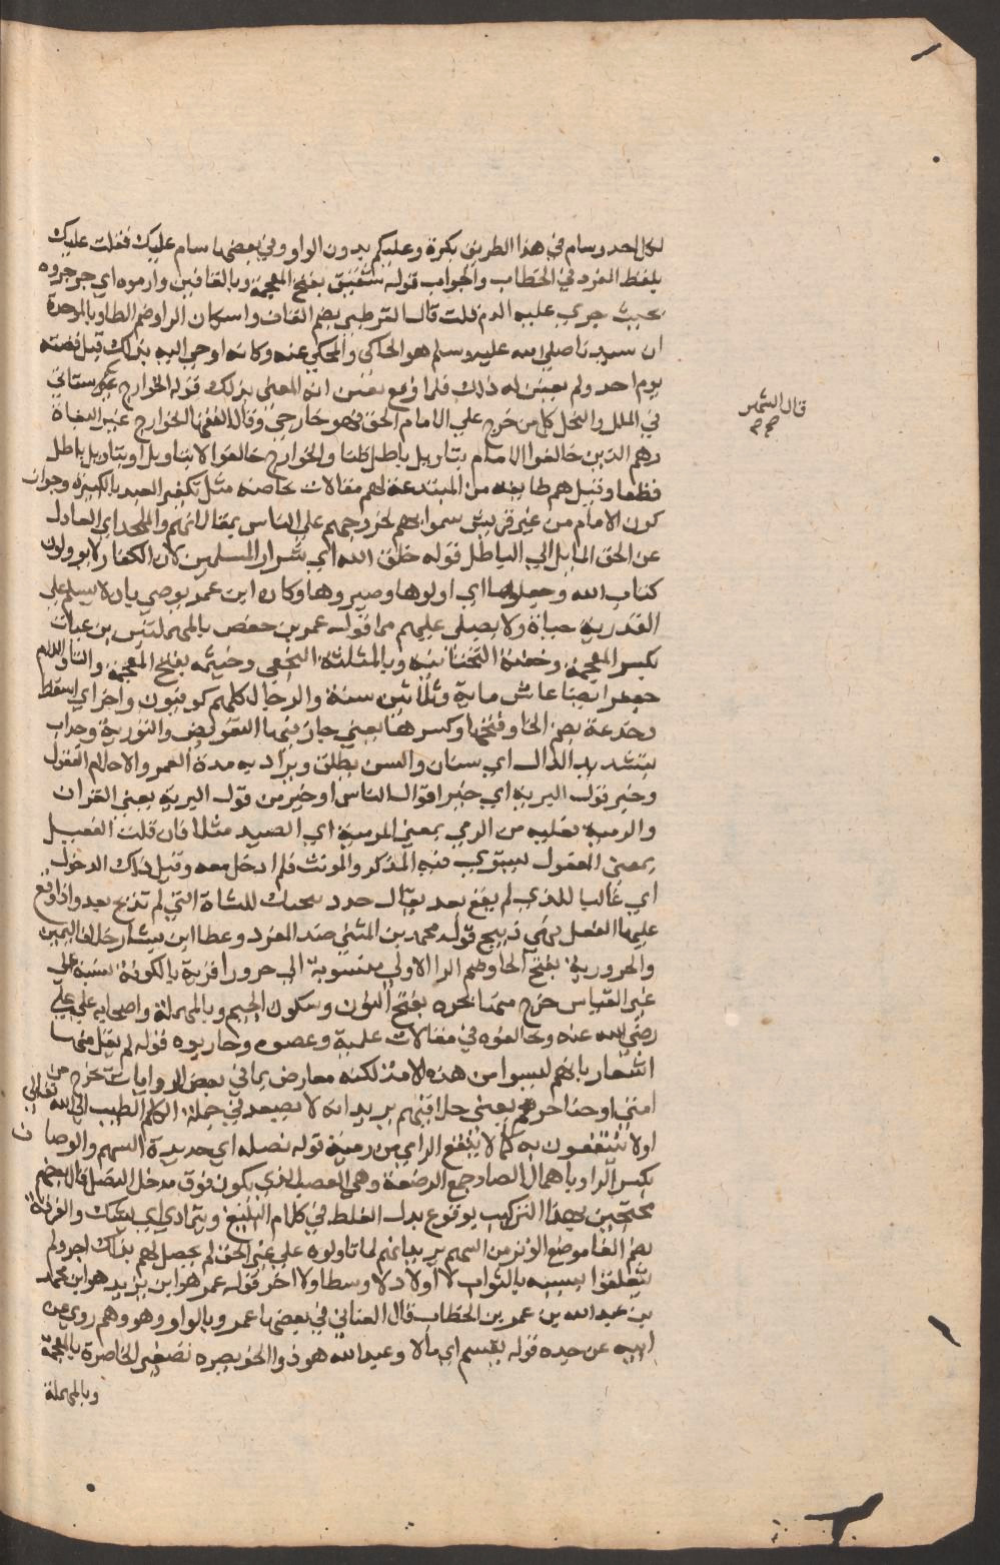 لكل احد وسام في هذا الطريق بكرة وعليكم بدون الواو وفي بعضها سام عليك فقلت عليك
بلفظ المفرد في الخطاب والجواب قوله شقيق بفتح المعجمة وبالقافين وارموه اي جرجروه
بحيث جري عليه الدم قلت قال القرطبي بضم القاف واسكان الراء وضم الطا وبالموحدة
ان سيدنا صلى الله عليه وسلم هو الحاكي والمحكي عنه وكانه اوحي اليه بذلك قبل قضته
يوم احد ولم يعين له ذلك فلما وقع تعين انه المعني بذلك قوله الخوارج شهرستاني
في الملل والنحل كل من خرج علي الامام الحق فهو خارجي وقال الفقها الخوارج غير البغاة
وهم الذين خالفوا الامام بتاويل باطل ظنا والخوارج خالفوا لا بتاويل او بتاويل باطل
قطعا وقيل هم طايفة من المبتدعة لهم مقالات خاصة مثل تكفير العبد بالكبيرة وجواز
كون الامام من غير قريش سموا بهم لخروجهم علي الناس بمقالاتهم والملحد اي العادل
عن الحق المايل الي الباطل قوله خلق الله اي شرار المسلمين لان الكفار لا يؤولون
كتاب الله وجعلوها اي اولوها وصيروها وكان ابن عمر يوصي بان لا يسلم علي
القدرية حياة ولا يصلي عليهم مرا قوله عمر بن حفص بالمهملتين بن غياث
بكسر المعجمة وخفة التحتانية وبالمثلثة النخعي وخيثمة بفتح المعجمة والتا واللام
جعفرا ايضا عاش ماية وثلاثين سنة والرجال كلهم كوفيون واخر اي اسقط
وخدعة بضم الخا وفتحها وكسرها يعني جاز فيها التعريض والتورية وحداث
بتشديد الدال اي سنان والسن يطلق ويراد به مدة العمر والاحلام العقول
وخير قول البرية اي خير اقوال الناس او خير من قول البرية يعني القران
والرمية فعلية من الرمي بمعني المرمية اي الصيد مثلا فان قلت الفعيل
بمعني المفعول يستوي فيه المذكر والمونث فلم ادخل معه وقيل ذلك الدخول
اي غالبا للذي لم يقع بعد يقال حدد سحدك للشاة التي لم تذبح بعد واذا وقع
عليها الفعل فهي ذبيح قوله محمد بن المثني ضد المفرد وعطا ابن يسار خلاف اليمين
والحرورية بفتح الحا وضم الرا الاولي منسوبة الي حرورا قرية بالكوفة نسبة علي
غير القياس خرج منها نجدة بفتح النون وسكون الجيم وبالمهملة واصحابه علي علي
رضي الله عنه وخالفوه في مقالات علمية وعصوه وحاربوه قوله لم يقل منها
اشعار بانهم ليسوا من هذه الامة لكنه معارض بما في بعض الروايات يخرج من
امتي او حناجرهم يعني حلاقيهم يريد انه لا يصعد في جملة الكلم الطيب الي الله تعالي
او لا ينتفعون به كما لا ينتفع الرامي من رميه قوله نصله اي حديدة السهم والوصاف
بكسر الرا وباهمال الصاد جمع الرصفة وهي العصب الذي يكون فوق مدخل النصل قال بعضهم
محتجين بهذا التركيب بوقوع بدل الغلط في كلام البليغ ويتمادي اي يشك والفوقة
بضم الفا موضع الوتر من السهم يريد بانهم لما تاولوه علي غير الحق لم يحصل لهم بذلك اجر ولم
يتعلقوا بسببه بالثواب لا اولا ولا وسطا ولا اخر قوله عمر هو ابن يزيد هو ابن محمد
بن عبد الله بن عمر بن الخطاب قال الغساني في بعضها عمرو بالواو وهو وهم روي عن
ابيه عن جده قوله يقسم اي مالا وعبد الله هو ذو الخويصرة تصغير الخاصرة بالمعجمة
وبالمهملة
قال الشهر